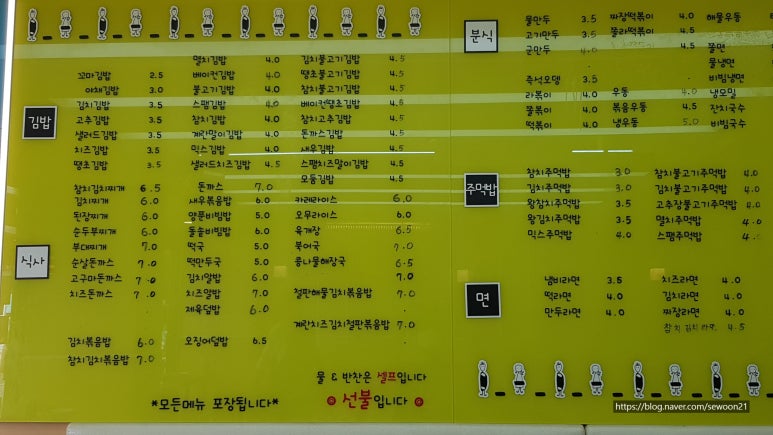 김밥
꼬마김밥 2.5
야채김밥 3.0
김치김밥 3.5
고추김밥 3.5
샐러드김밥 3.5
치즈김밥 3.5
땡초김밥 3.5
멸치김밥 4.0
베이컨김밥 4.0
불고기김밥 4.0
스팸김밥 4.0
참치김밥 4.0
계란말이김밥 4.0
믹스김밥 4.0
샐러드치즈김밥 4.5
김치불고기김밥 4.5
땡초불고기김밥 4.5
참치불고기김밥 4.5
베이컨땡초김밥 4.5
참치고추김밥 4.5
돈까스김밥 4.5
새우김밥 4.5
스팸치즈말이김밥 4.5
모듬김밥 4.5
식사
참치김치찌개 6.5
김치찌개 6.0
된장찌개 6.0
순두부찌개 6.0
부대찌개 7.0
순살돈까스 7.0
고구마돈까스 7.0
치즈돈까스 7.0
김치볶음밥 6.0
참치김치볶음밥 7.0
돈까스 7.0
새우볶음밥 6.0
양푼비빔밥 5.0
돌솥비빔밥 6.0
떡국 5.0
떡만두국 5.0
김치알밥 6.0
치즈알밥 7.0
제육덮밥 6.0
오징어덮밥 6.5
카레라이스 6.0
오므라이스 6.0
육개장 6.5
북어국 7.0
콩나물해장국 6.5
7.0
철판해물김치볶음밥 7.0
계란치즈김치철판볶음밥 7.0
물 & 반찬은 셀프입니다
*모든메뉴 포장됩니다*
선불입니다
분식
물만두 3.5
고기만두 3.5
군만두 4.0
즉석오뎅 3.5
라볶이 4.0
쫄볶이 4.0
떡볶이 4.0
짜장떡볶이 4.0
쫄라떡볶이 4.0
4.5
우동 4.0
볶음우동 4.5
냉우동 5.0
해물우동
쫄면
물냉면
비빔냉면
냉모밀
잔치국수
비빔국수
주먹밥
참치주먹밥 3.0
김치주먹밥 3.0
왕참치주먹밥 3.5
왕김치주먹밥 3.5
믹스주먹밥 4.0
참치불고기주먹밥 4.0
김치불고기주먹밥 4.0
고추장불고기주먹밥 4.0
멸치주먹밥 4.0
스팸주먹밥 4.0
면
냄비라면 3.5
떡라면 4.0
만두라면 4.0
치즈라면 4.0
김치라면 4.0
짜장라면 4.0
참치김치라면 4.5
https://blog.naver.com/sewoon21